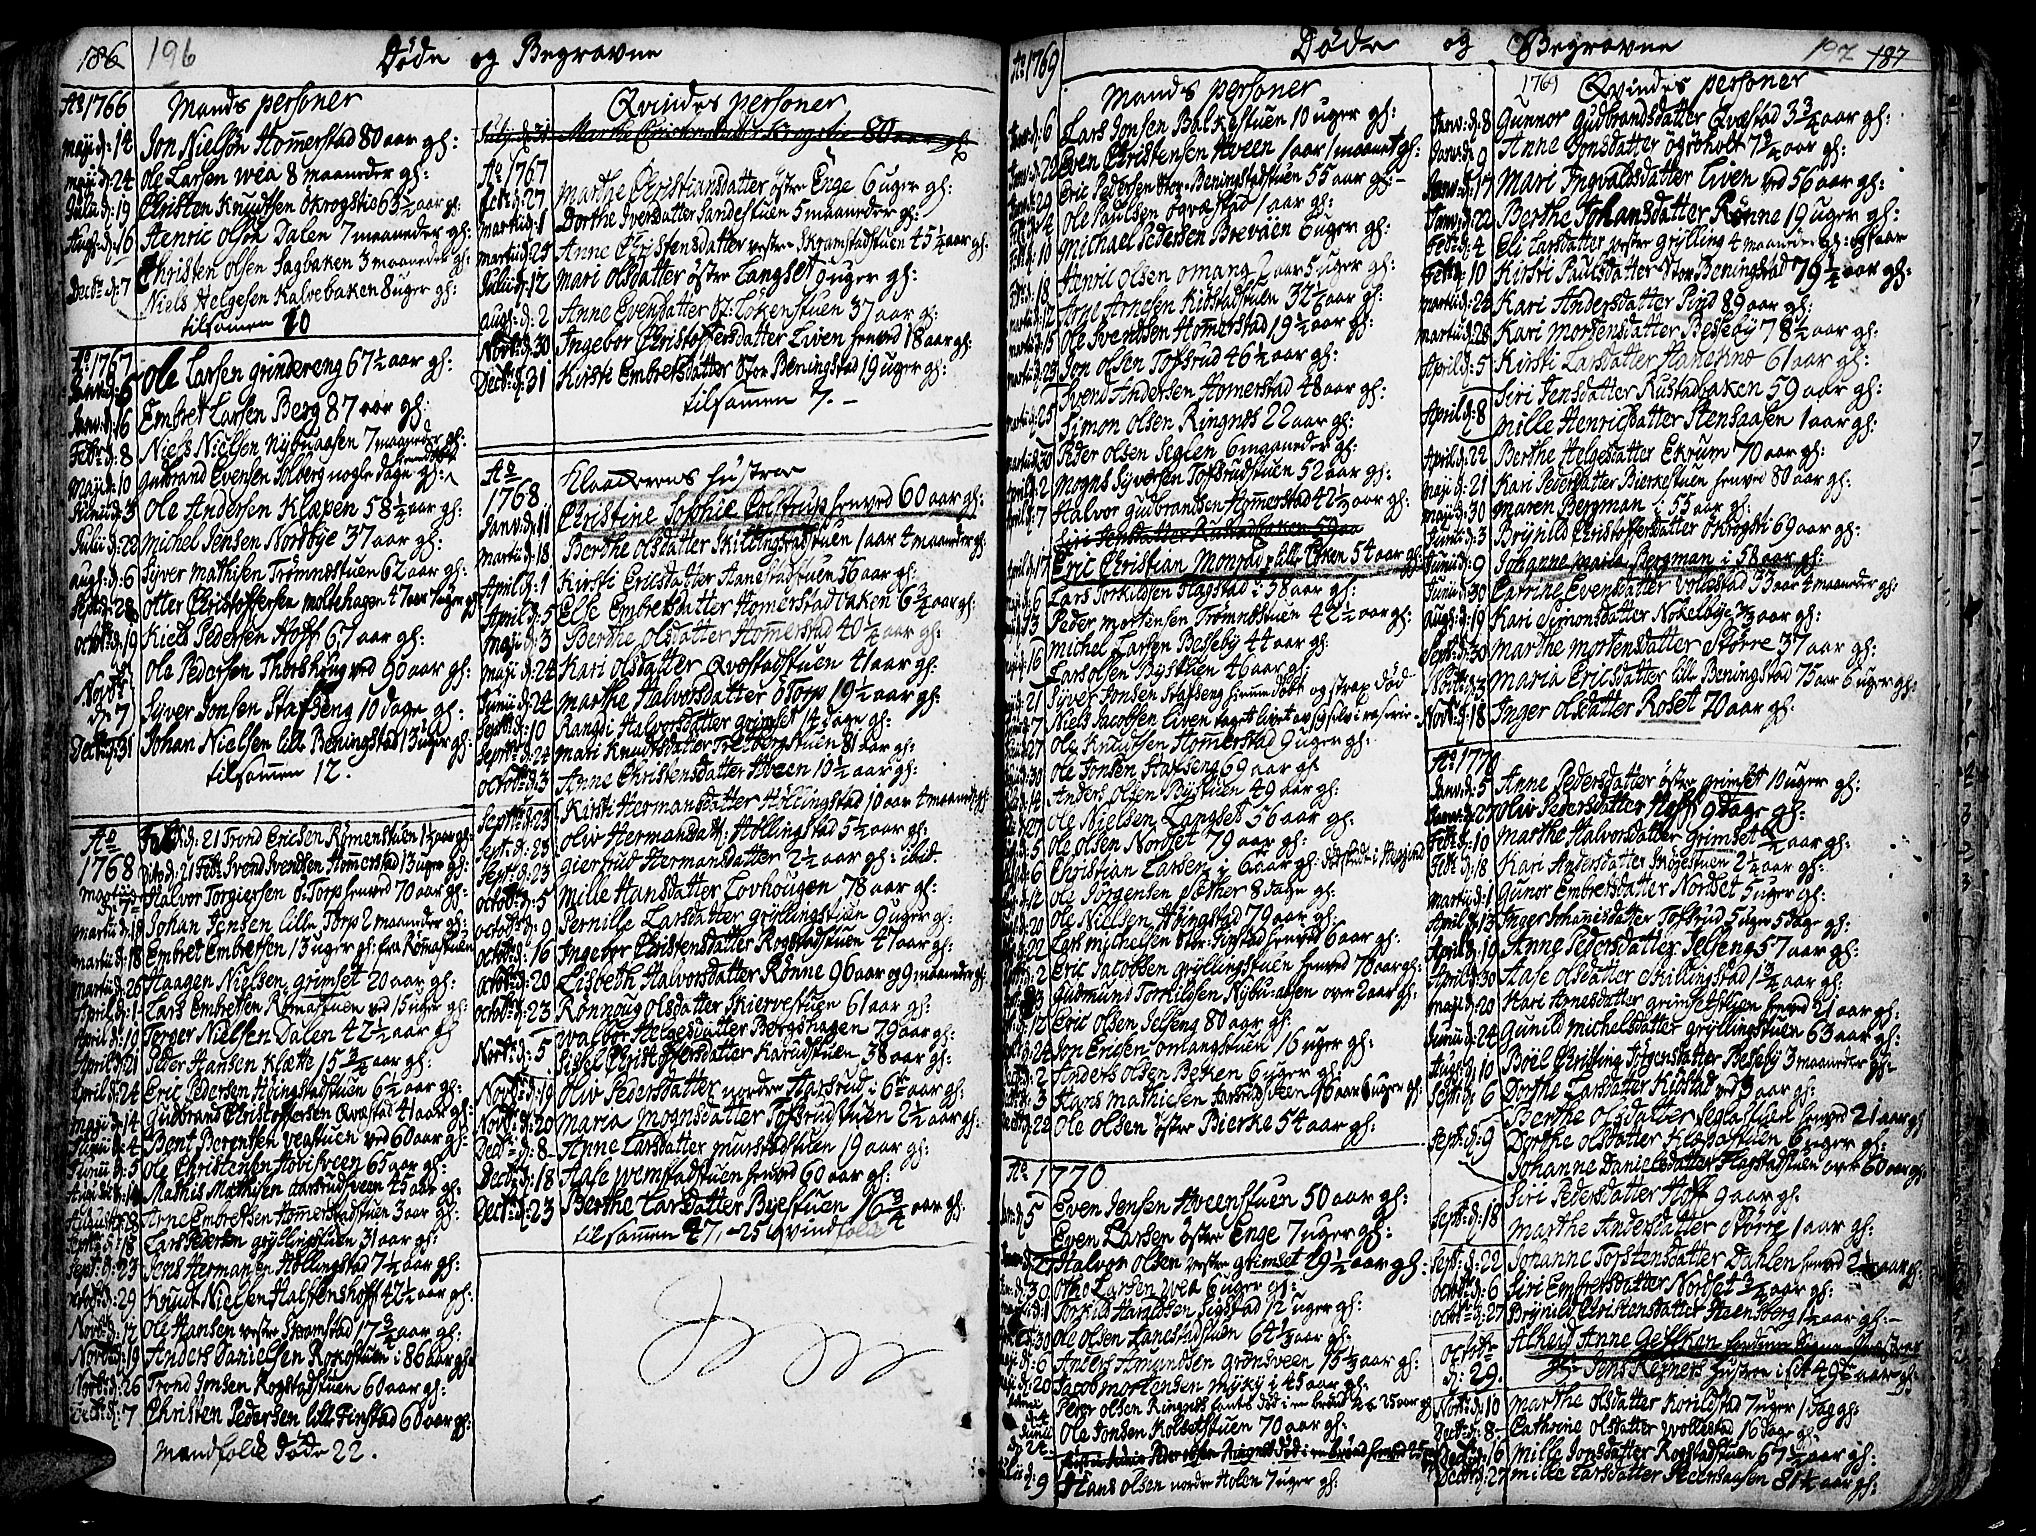 186 196 Døde og Begravne
Ao 1766 Mands personer
maji d: 14 Jon Nielsøn Hommerstad 80 aar gl:
maji d: 24 Ole Larsen wea 8 maaneder gl:
Julii d: 19 Christen Knudtsen økrogstie 63½ aar gl:
Augs: d: 16 Henric olsøn Dalen 7 maaneder gl:
Christen olsen Sagbaken 3 maaneder gl:
Decbr d: 7 Niels Helgesen Kalvebaken 8 uger gl:
tilsamen 10
Ao 1767
Janv: d: 5 Ole Larsen grindereng 67½ aar gl:
Janv: d: 16 Embret Larsen Berg 87 aar gl:
Febr: d: 8 Niels Nielsen Nybuaasen 7 maaneder gl:
Maji d: 10 Gudbrand Evensen Solberg nogle dage gl:
Junii d: 3 Ole Andersen Klæpen 58½ aar gl:
Julii d: 22 Michel Jensen Nordbye 37 aar gl:
augs: d: 6 Syver Mathisen Trømnæstuen 62 aar gl:
Sept: d: 28 otter Christoffersen moltehagen 47 aar gl:
octobr: d: 19 Niels Pedersen Hoff 67 aar gl:
Ole Pedersen Thorshoug ved 90 aar gl:
Novbr: d: 7 Syver Jonsen Stafseng 10 dage gl:
Decbr: d: 31 Johan Nielsen lill Beningstad 13 uger gl:
tilsammen 12.
Ao 1768
d: 21 Trond Ericsen Rømenstuen 1½ aar gl:
Dito d: 21 Febr Svend Svendsen Homerstad 13 uger gl:
Halvor Torgiersen ø: Torp henved 70 aar gl:
martii d: 18 Johan Jensen lille Torp 2 maaneder gl:
martii d: 18 Embret Embretsen 13 uger gl: fra Romastuen
martii d: 26 Haagen Nielsen grimset 20 aar gl:
April d: 1 Lars Embretsen Romastuen ved 15 uger gl:
April d: 19 Torger Nielsen Dalen 42½ aar gl:
April d: 21 Peder Hansen Klætte 15¾ aar gl:
April d: 24 Eric Pedersen Høingstadstuen 6½ aar gl:
maji d: 14 Gudbrand Christoffersen Qvæstad 41 aar gl:
Junii d: 4 Bent Berentsen veastuen ved 60 aar gl:
Junii d: 5 Ole Christensen Hovisveen 65 aar gl:
Mathis Mathisen aarsrudveen 45 aar gl:
Augustii d: 28 Arne Embretsen Hommerstadstuen 3 aar gl:
Septbr: d: 18 Lars Pedersen gryllingstuen 31 aar gl:
Sept: d: 23 Jens Hermansen Hollingstad 7½ aar gl:
d: 29 Knudt Nielsen Halstenshoff 42½ aar gl:
Novbr: d: 12 Ole Hansen vestre Skramstad 17¾ aar gl:
Novbr: d: 19 Anders Danielsen Rokostuen i 86 aar gl:
Novbr: d: 26 Trond Jonsen Rogstadstuen 60 aar gl:
Decbr: d: 7 Christen Pedersen lill Finstad 60 aar gl:
Mandfolk døde 22.
Qvindes personer
Julii d: 31 Marthe 80 aar gl
Ao 1767
d: 27 Marthe Christiansdatter østre Enge 6 uger gl:
Martii d: 1 Dorthe Iversdatter Sandestuen 5 maaneder gl:
martii d: 25 Anne Christensdatter vestre Skramstadstuen 45½ aar gl:
Julii d: 12 mari olsdatter østre Langset 9 uger gl:
augs: d: 2 Anne Evensdatter ø: Løkenstuen 37 aar gl:
Novbr: d: 30 Ingebor Christoffersdatter Liven henved 18 aar gl:
Decbr: d: 31 Kirsti Embretsdatter Stor Beningstad 19 uger gl:
tilsammen 7.
Ao 1768 hustrue
Janv: d: 11 Christine Sophie henved 60 aar gl:
Martii d: 18 Berthe olsdatter Skillingstadstuen 1 aar 4 maaneder gl:
April d: 1 Kirsti Ericsdatter Hanestadstuen 56 aar gl:
April d: 5 Else Embretsdatter Homerstadbaken 6¾ aar gl:
maji d: 3 Berthe olsdatter Hommerstad 40¼ aar gl:
maji d: 24 Kari olsdatter Qvæstadstuen 41 aar gl:
Junii d: 24 marthe Halvorsdatter ø Torp 19½ aar gl:
Septbr d: 10 Rangdi Halvorsdatter grimset 14 dage gl:
Septbr: d: 24 mari Knudtsdatter Tretbergstuen 81 aar gl:
octobr: d: 3 Anne Christensdatter Hveen 10½ aar gl:
Septbr: d: 23 Kirsti Hermansdatter Hollingstad 10 aar 4 maaneder gl:
Sept: d: 23 oliv Hermansdatt: Hollingstad 5½ aar gl:
Sept: d: 23 giertrud Hermansdatter 2½ aar gl: ibid.
octob: d: 5 Mille Hansdatter Lovhougen 78 aar gl:
octobr: d: 9 Pernille Larsdatter gryllingstuen 9 uger gl:
octobr: d: 16 Ingebor Christensdatter Rogstadstuen 47 aar gl:
octobr: d: 20 Lisbeth Halvorsdatter Rønne 96 aar og 9 maaneder gl:
octobr: d: 23 Rønnoug olsdatter Skiervestuen 61 aar gl:
Valbor Helgesdatter Borgshagen 79 aar gl:
Novbr: d: 5 Sidsel Christoffersdatter Karudstuen 38 aar gl:
Novbr: d: 19 Oliv Pedersdatter nordre Aarsrud i 6te aar gl:
Novbr: d: 20 Maria Mognsdatter Tofsrudstuen 2½ aar gl:
Decbr: d: 8 Anne Larsdatter murstadstuen 19 aar gl:
Decbr: d: 18 Aase wemstadstuen henved 60 aar gl:
Decbr: d: 23 Berthe Larsdatter Byestuen 16¾ aar gl:
tilsammen 47, - 25 qvindfolk
Ao 1769 Døde og Begravne 197 187
Mands personer
Janv: d: 6 Lars Jonsen Balkestuen 10 uger gl:
Janv: d: 22 Even Christensen Hveen 1 aar 1 maanet gl:
Janv: d: 29 Eric Pedersen Stor-Beningstadstuen 55 aar gl:
d: 4 Ole Paulsen øqvæstad 1 aar gl:
d: 10 Michael Pedersen Brevaen 6 uger gl:
d: 18 Henric olsen omang 2 aar 5 uger gl:
martii d: 12 Arne Arnesen Kidstadstuen 32½ aar gl:
martii d: 15 Ole Svendsen Hommerstad 19½ aar gl:
martii d: 23 Jon olsen Tofsrud 46½ aar gl:
Svend Andersen Homerstad 48 aar gl:
martii d: 25 Simon olsen Ringnos 22 aar gl:
martii d: 30 Peder olsen Seglen 6 maaneder gl:
April d: 2 Mogns Syversen Tofsrudstuen 52 aar gl:
April d: 7 Halvor Gudbrandsen Hommerstad 42½ aar gl:
Siri Jensdatter Rustadbaken 59 aar
April d: 17 Eric Christian Monrad lill Løken 54 aar gl:
d: 6 Lars Torkildsen Flagstad i 38 aar gl:
d: 13 Peder mortensen Trømnæstuen 42½ aar gl:
Michel Larsen Besseby 44 aar gl:
d: 16 Lars olsen Bystuen 46 aar gl:
d: 21 Syver Jonsen Stafseng hiemmedøbt og strax død
d: 7 Niels Jacobsen Liven taget livet av sig selv i raserie
d: 27 Ole Knudtsen Hommerstad 9 uger gl:
d: 30 Ole Jonsen Stafseng 69 aar gl:
d: 14 Anders olsen Byestuen 49 aar gl:
d: 27 Ole Nielsen Langset 56 aar gl:
d: 5 Ole olsen Nordset 79 aar gl:
d: 6 Christian Larsen i 6 aar gl:
d: 12 Ole Jørgensen Sether 8 dage gl:
d: 20 Ole Nielsen Høingstad 79 aar gl:
d: 22 Lars michelsen Stor-Finstad henved 6 aar gl:
d: 2 Eric Jacobsen gryllingstuen henved 78 aar gl:
Gudmund Torkildsen Nybu-aasen over 2 aar gl:
d: 12 Eric olsen Jelseng 80 aar gl:
d: 24 Jon Ericsen omangstuen 16 uger gl:
d: 2 Anders olsen Beken 6 uger gl:
d: 3 Hans Mathiesen Aarsrudveen 10 aar 6 uger gl:
d: 22 Ole olsen østre Bierke 54 aar gl:
Ao 1770
Janv: d: 5 Even Jensen Hveenstuen 50 aar gl:
Even Larsen østre Enge 7 uger gl:
d: 27 Halvor olsen vestre grimset 29½ aar gl:
d: 30 Otho Larsen wea 6 uger gl:
d: 1 Torkild Haraldsen Sigstad 12 uger gl:
d: 30 Ole olsen Lanæstadstuen 64½ aar gl:
d: 6 Anders Amundsen grønsveen 15½ aar gl:
d: 20 Jacob mortensen myky i 45 aar gl:
Peder olsen Ringnæs fantes død i en brønd 25 aar gl:
Ole Jonsen Kolsetstuen 70 aar gl:
d: 24
d: 9 Hans olsen nordre Holen 7 uger gl:
1769 Qvindes personer
Janv: d: 8 Gunnor Gudbrandsdatter Qvæstad 3¾ aar gl:
Janv: d: 9 Anne Jonsdatter øgrøholt 7¾ aar gl:
Janv: d: 17 Mari Ingvaldsdatter Liven ved 56 aar gl:
Janv: d: 22 Berthe Johansdatter Rønne 19 uger gl:
Febr: d: 4 Eli Larsdatter vestre grylling 4 maaneder gl:
Febr: d: 10 Kirsti Paulsdatter Stor Beningstad 79½ aar gl:
martii d: 24 Kari Andersdatter Lund 89 aar gl:
martii d: 28 Kari Mortensdatter Besseby 78½ aar gl:
April d: 5 Kirsti Larsdatter Hanekne 61 aar gl:
Siri Jensdatter Rustadbaken 59 aar gl:
April d: 8 Mille Henricsdatter Stensaasen 1 aar gl:
April d: 22 Berthe Helgesdatter Ekrum 70 aar gl:
maji d: 21 Kari Pedersdatter Bierkestuen henved 80 aar gl:
maji d: 30 Maren Bergman i 55 aar gl:
Junii d: 3 Brynild Christoffersdatter økrogsti 69 aar gl:
Junii d: 9 Johanne Maria Bergman i 58 aar gl:
Junii d: 30 Catrine Evensdatter Vollestad 33 aar 4 maaneder gl:
augs: d: 19 Kari Simonsdatter Nokelbye aar gl:
Sept: d: 30 Marthe mortensdatter Større 37 aar gl:
Novbr: d: 3 Maria Ericsdatter lill Beningstad 75 aar 6 uger gl:
Novbr: d: 18 Inger olsdatter Roset 70 aar gl:
Ao 1770
Janv: d: 5 Anne Pedersdatter østre grimset 10 uger gl:
Janv: d: 27 Oliv Pedersdatter Hoff 9 dage gl:
Febr: d: 10 Marthe Halvorsdatter grimset aar gl:
Febr: d: 18 Kari Andersdatter Snyestuen 2½ aar gl:
martii d: 1 Gunor Embretsdatter Nordset 5 uger gl:
April d: 13 Inger Johannesdatter Tofsrud 5 uger 5 dage gl:
April d: 19 Anne Pedersdatter Jelseng 57 aar gl:
April d: 30 Aase olsdatter Skillingstad 1¾ aar gl:
maji d: 20 Kari Arnesdatter grimsetstuen henved 21 aar gl:
Junii d: 24 Gunild michelsdatter gryllingstuen 63 aar gl:
Aug: d: 10 Boel Christine Jørgensdatter Besseby 3 maaneder gl:
Sept: d: 6 Dorthe Larsdatter Kidstad ved 9 aar gl:
Berthe olsdatter Seglastuen henved 21 aar gl:
Sept: d: 9 Dorthe olsdatter Klæpastuen 6 uger gl:
Johanne Danielsdatter Flagstadstuen over 60 aar gl:
Siri Pedersdatter Hoff 9 aar gl:
Septbr: d: 18 Marthe Andersdatter øSørre 1 aar gl:
Septbr: d: 22 Johanne Torstensdatter Dahlen henved 2½ aar gl:
octobr: d: 6 Siri Embretsdatter Nordset ¾ aar gl:
octobr: d: 27 Brynild Christensdatter Stensberg 1½ aar gl:
octobr: d: 29. Alhead Anne Geelken
Jens Regners hustrue i sit 49de aar gl:
Novbr: d: 10 Marthe olsdatter Korildstad 7 uger 1 dag gl:
Decbr: d: 8 Cathrine olsdatter Vollestad 16 dage gl:
Decbr: d: 16 Mille Jonsdatter Rogstadstuen 67½ aar gl:
Decbr: d: 27 Mille Larsdatter Stensaasen 81½ aar gl: